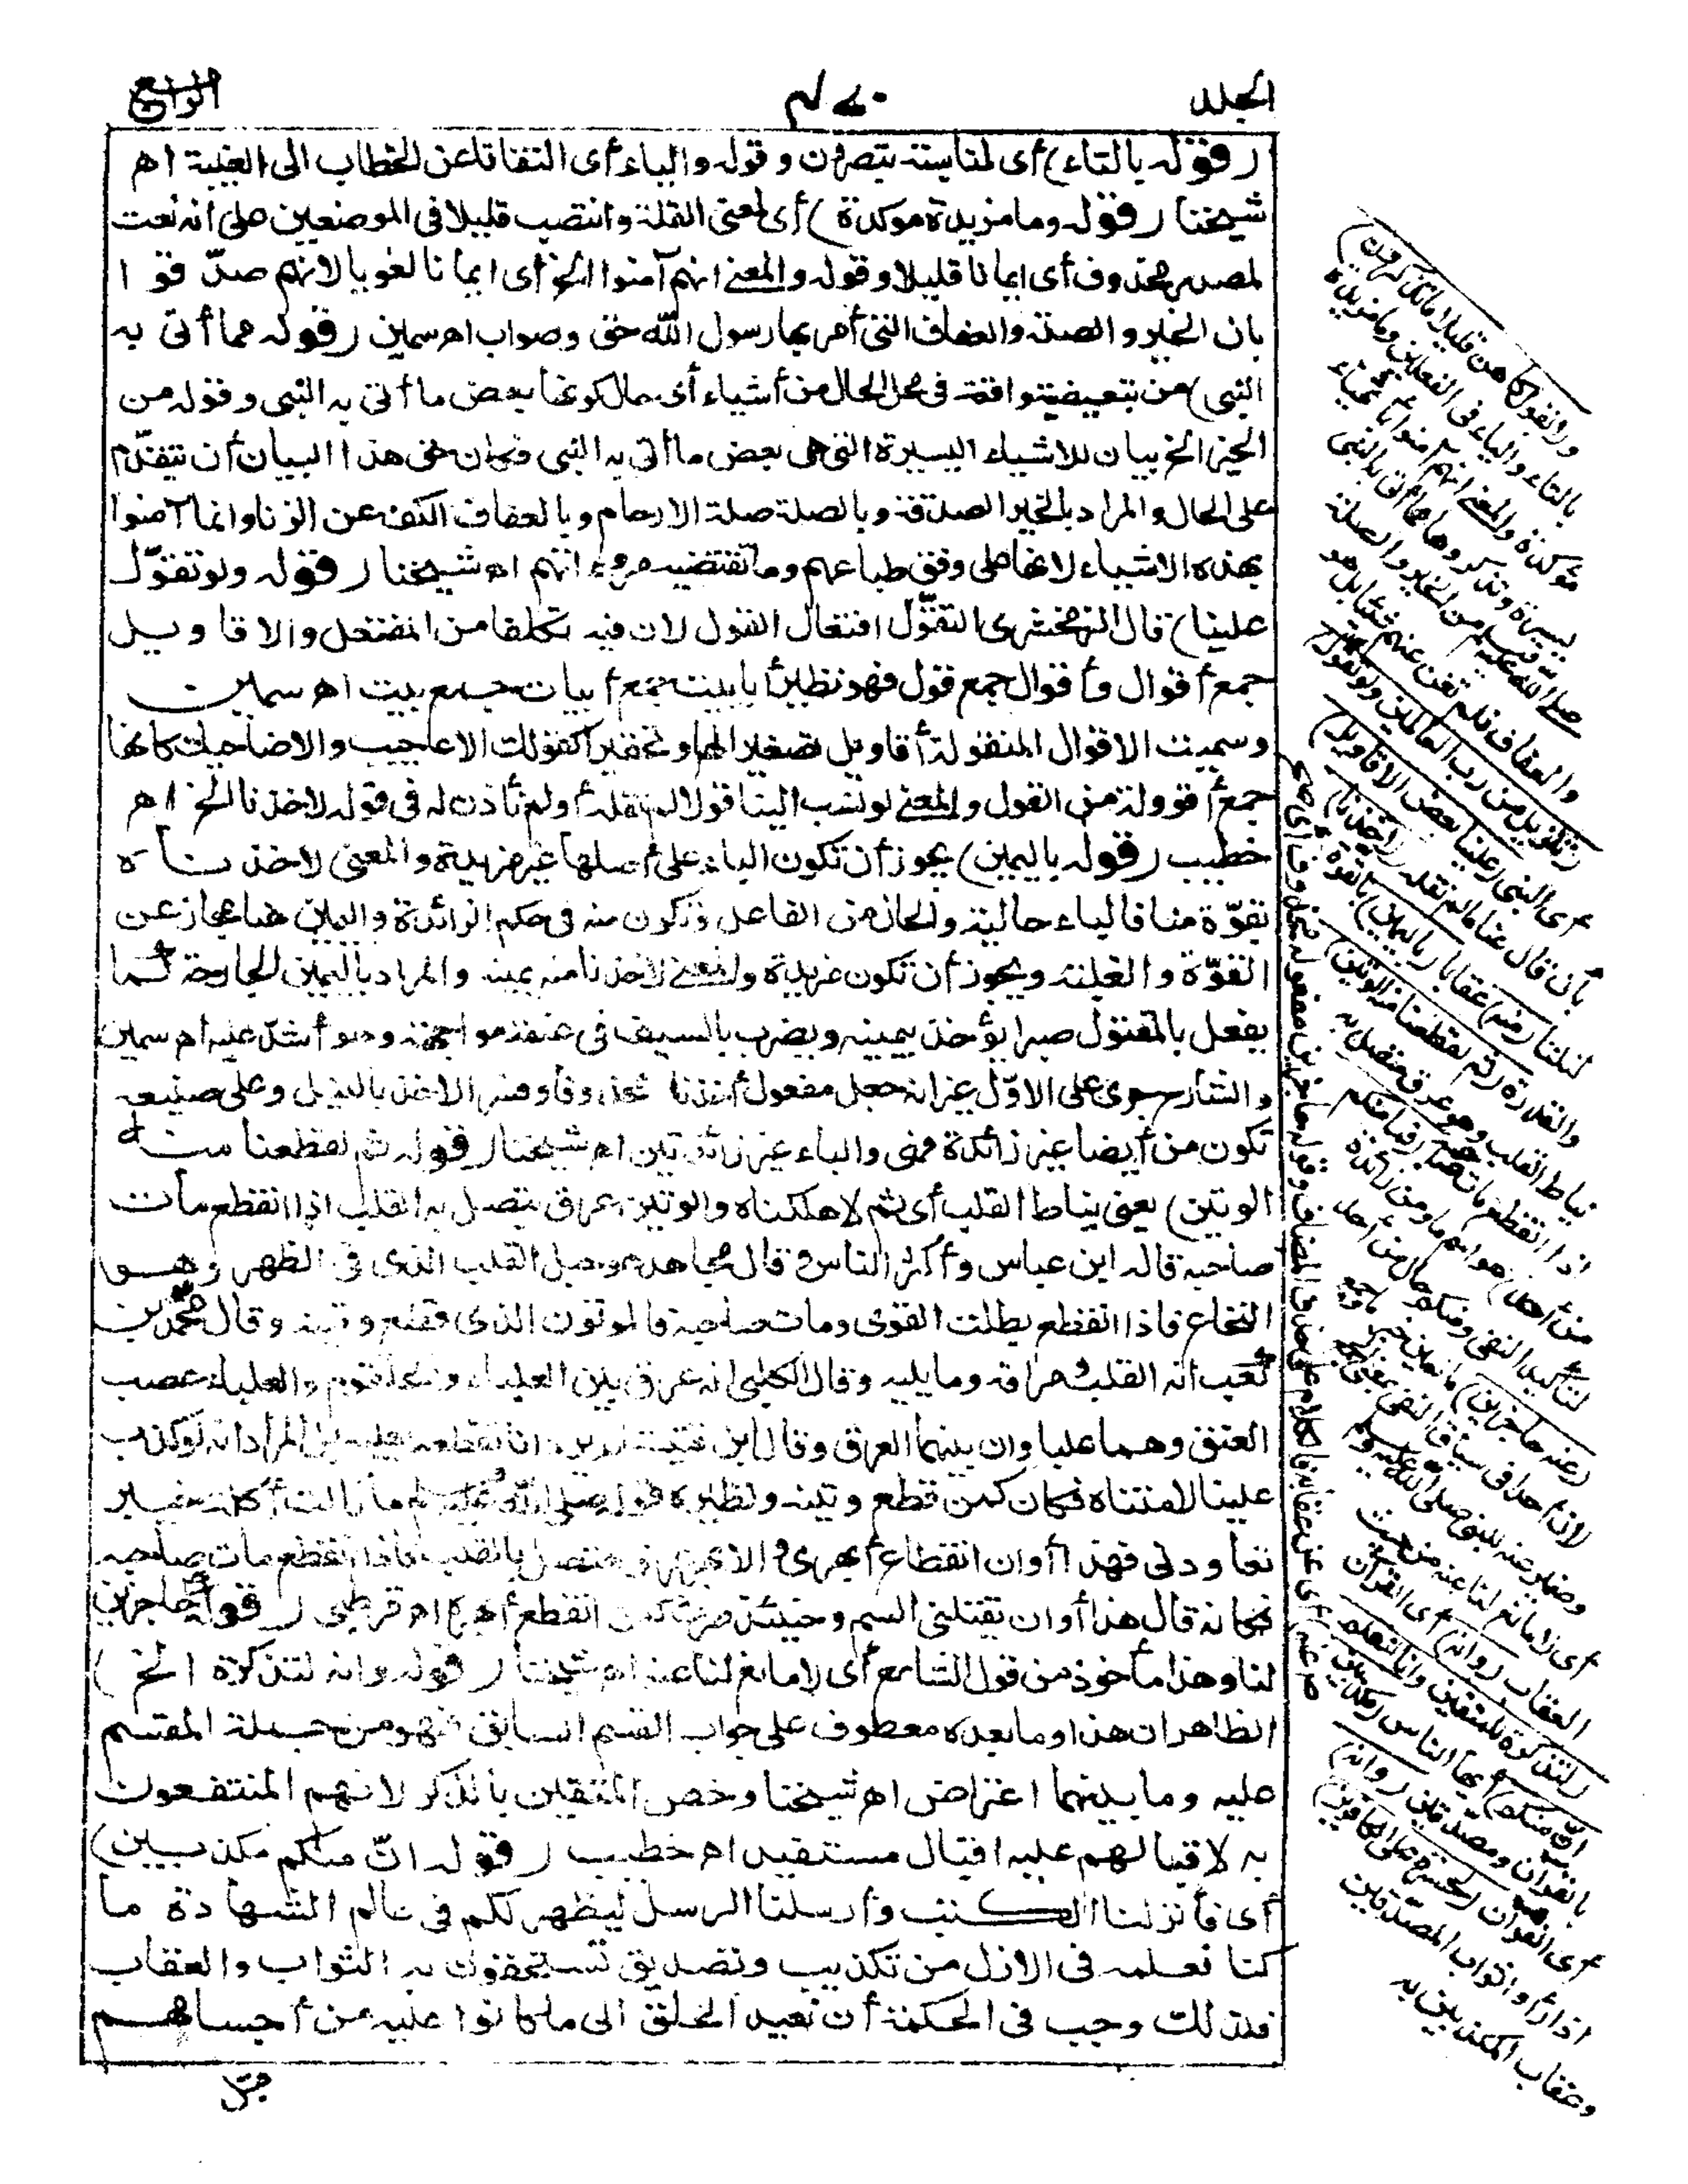 الجلد
الرابع
(قوله بالتاء) أى لمناسبة تبصرون وقوله والياء أى التفاتا عن الخطاب الى الغيبة اهـ
شيخنا (قوله وما مزيدة مؤكدة) أى لمعنى القلة وانتصب قليلا فى الموضعين على أنه نعت
لمصدر محذوف أى ايمانا قليلا وقوله والمعنى انهم آمنوا الخ أى ايمانا لغويا لانهم صدّقوا
بان الخير والصلة والعفاف التى أمر بها رسول الله حق وصواب اهـ سمين (قوله مما أتى به
النبى) من تبعيضية واقعة فى محل الحال من أشياء أى حال كونها بعض ما أتى به النبى وقوله من
الخير الخ بيان للاشياء اليسيرة التى هى بعض ما أتى به النبى فكان حق هذا البيان أن يتقدّم
على الحال والمراد بالخير الصدقة وبالصلة صلة الارحام وبالعفاف الكف عن الزنا وانما آمنوا
بهذه الاشياء لانها على وفق طباعهم وما تقتضيه مروءاتهم اهـ شيخنا (قوله ولو تقوّل
علينا) قال الزمخشرى التقوّل افتعال القول لان فيه تكلفا من المفتعل والاقاويل
جمع أقوال وأقوال جمع قول فهو نظير أبابيت جمع أبيات جمع بيت اهـ سمين
وسميت الاقوال المنقولة أقاويل تصغيرا لها وتحقيرا كقولك الاعاجيب والاضاحيك كانها
جمع أقوولة من القول والمعنى لو نسب الينا قولا لم نقله أو لم نأذن له فى قوله لاخذنا الخ اهـ
خطيب (قوله باليمين) يجوز أن تكون الباء على أصلها غير مزيدة والمعنى لاخذناه
بقوّة منا فالباء حالية والحال من الفاعل وتكون منه فى حكم الزائدة واليمين هنا مجاز عن
القوّة والغلبة ويجوز أن تكون مزيدة والمعنى لاخذنا منه يمينه والمراد باليمين الجارحة كما
يفعل بالمقتول صبرا يؤخذ بيمينه ويضرب بالسيف فى عنقه مواجهة وهو أشدّ عليه اهـ سمين
والشارح جرى على الاوّل غير انه جعل مفعول أخذنا محذوفا وفسر الاخذ بالنيل وعلى صنيعه
تكون من أيضا غير زائدة فمن والباء غير زائدتين اهـ شيخنا (قوله ثم لقطعنا منه
الوتين) يعنى نياط القلب أى ثم لاهلكناه والوتين عرق يتصل به القلب اذا انقطع مات
صاحبه قاله ابن عباس وأكثر الناس وقال مجاهد هو حبل القلب الذى فى الظهر وهو
النخاع فاذا انقطع بطلت القوى ومات صاحبه فالموتون الذى قطع وتينه وقال محمد بن
كعب انه القلب ومراقه وما يليه وقال الكلبى انه عرق بين العلباء والحلقوم والعلباء عصب
العنق وهما علباوان بينهما العرق وقال ابن قتيبة لم يرد انا نقطعه بعينه بل المراد انه لو كذب
علينا لامتناه فكان كمن قطع وتينه ونظيره قوله صلى الله عليه وسلم ما زالت أكلة خيبر
تعاودنى فهذا أوان انقطاع أبهرى والابهر عرق متصل بالقلب فاذا انقطع مات صاحبه
فكانه قال هذا أوان يقتلنى السم وحينئذ صرت كمن انقطع أبهره اهـ قرطبى (قوله حاجزين
لنا وهذا مأخوذ من قول الشارح أى لا مانع لنا عنه اهـ شيخنا (قوله وانه لتذكرة الخ)
الظاهر ان هذا وما بعده معطوف على جواب القسم السابق فهو من جملة المقسم
عليه وما بينهما اعتراض اهـ شيخنا وخص المتقين بالذكر لانهم المنتفعون
به لاقبالهم عليه اقبال مستفيد اهـ خطيب (قوله انّ منكم مكذبين)
أى فأنزلنا الكتب وأرسلنا الرسل ليظهر لكم فى عالم الشهادة ما
كنا نعلمه فى الازل من تكذيب وتصديق تستحقون به الثواب والعقاب
فلذلك وجب فى الحكمة أن نعيد الخلق الى ما كانوا عليه من أجسامهم
قليلا ما تذكرون)
بالتاء والياء فى الفعلين وما مزيدة
مؤكدة والمعنى انهم آمنوا بأشياء
يسيرة وتذكروها مما أتى به النبى
صلى الله عليه وسلم من الخير والصلة
والعفاف فلم تغن عنهم شيأ بل هو
(تنزيل من رب العالمين ولو تقول)
أى النبى (علينا بعض الاقاويل)
بأن قال عنا ما لم نقله (لأخذنا)
لنلنا (منه) عقابا (باليمين) بالقوة
والقدرة (ثم لقطعنا منه الوتين)
نياط القلب وهو عرق متصل به
اذا انقطع مات صاحبه (فما منكم
من أحد) هو اسم ما ومن زائدة
لتأكيد النفى ومنكم حال من أحد
(عنه حاجزين) مانعين خبر ما وجمع
لان أحدا فى سياق النفى بمعنى الجمع
وضمير عنه للنبى صلى الله عليه وسلم
أى لا مانع لنا عنه من حيث
العقاب (وانه) أى القرآن
(لتذكرة للمتقين وانا لنعلم
أنّ منكم) أيها الناس (مكذبين)
بالقرآن ومصدّقين (وانه)
أى القرآن (لحسرة على الكافرين)
اذا رأوا ثواب المصدّقين
وعقاب المكذبين به